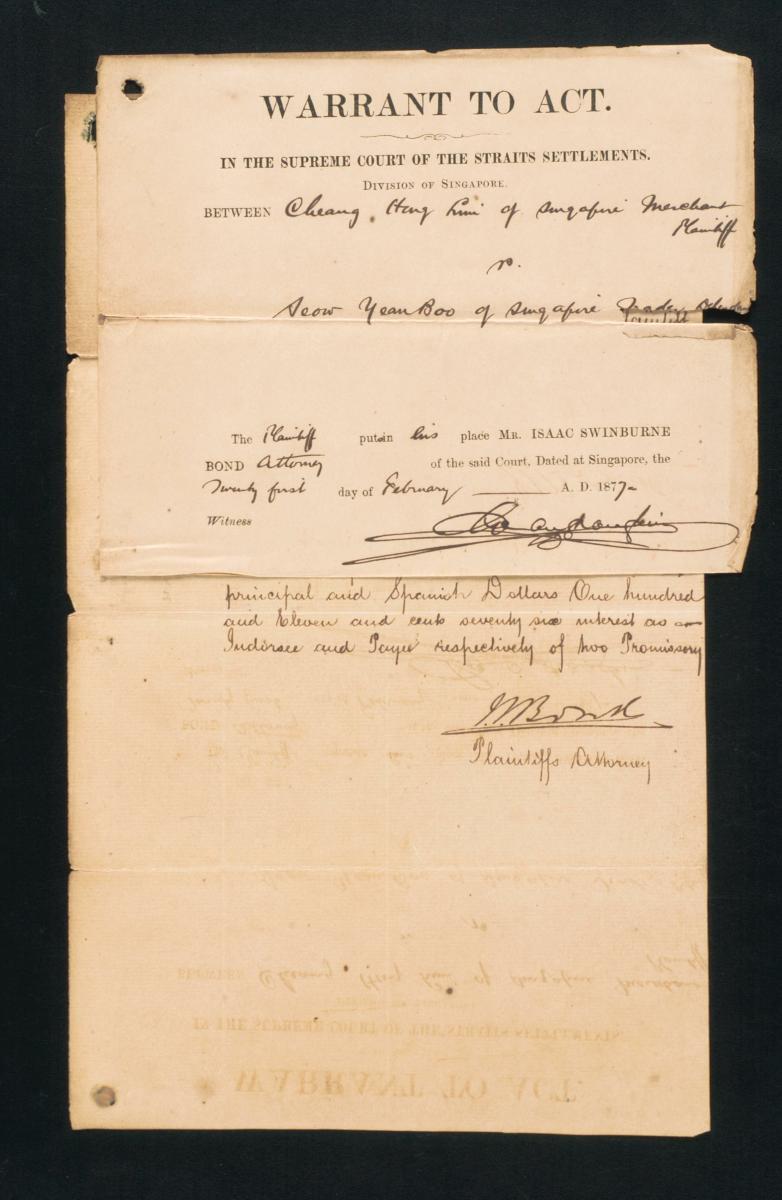 WARRANT TO ACT.
IN THE SUPREME COURT OF THE STRAITS SETTLEMENTS.
DIVISION OF SINGAPORE.
BETWEEN Cheang Hong Lim of Singapore Merchant
Plaintiff
vs.
Seow Yean Boo of Singapore Trader
The Plaintiff puts in his place MR. ISAAC SWINBURNE
BOND Attorney of the said Court, Dated at Singapore, the
Twenty first day of February A. D. 1877
Witness
principal and Spanish Dollars One hundred
and Eleven and cents seventy six interest as an
Indorsee and Payee respectively of two Promissory
Plaintiffs Attorney